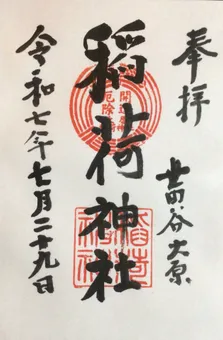 奉拝
世田谷大原
稲荷神社
令和七年七月二十九日